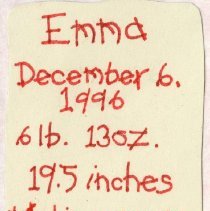 Emma
December 6.
1996
6lb. 13oz.
19.5 inches